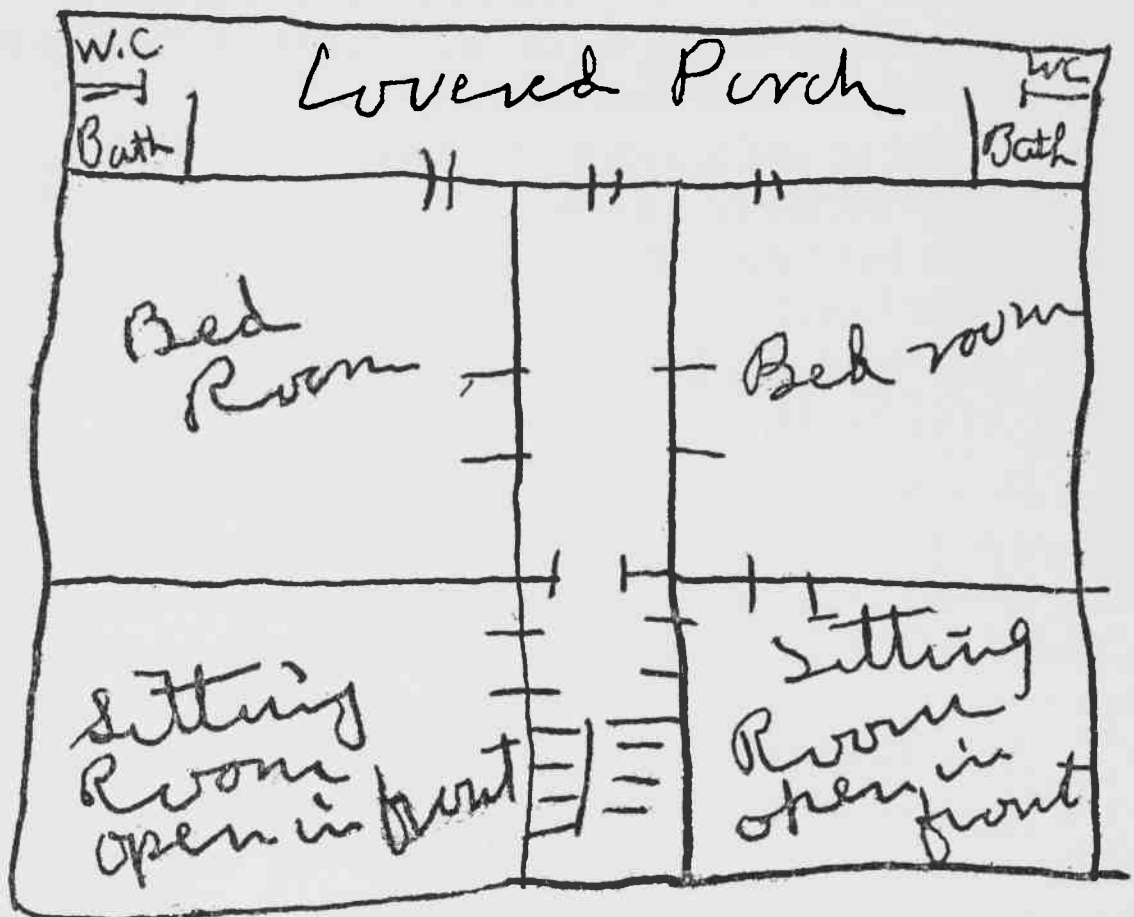 W.C
Covered Porch
WC
Bath
Bath
Bed
Room
Bed room
Sitting
Room
open in front
Sitting
Room
open in
front